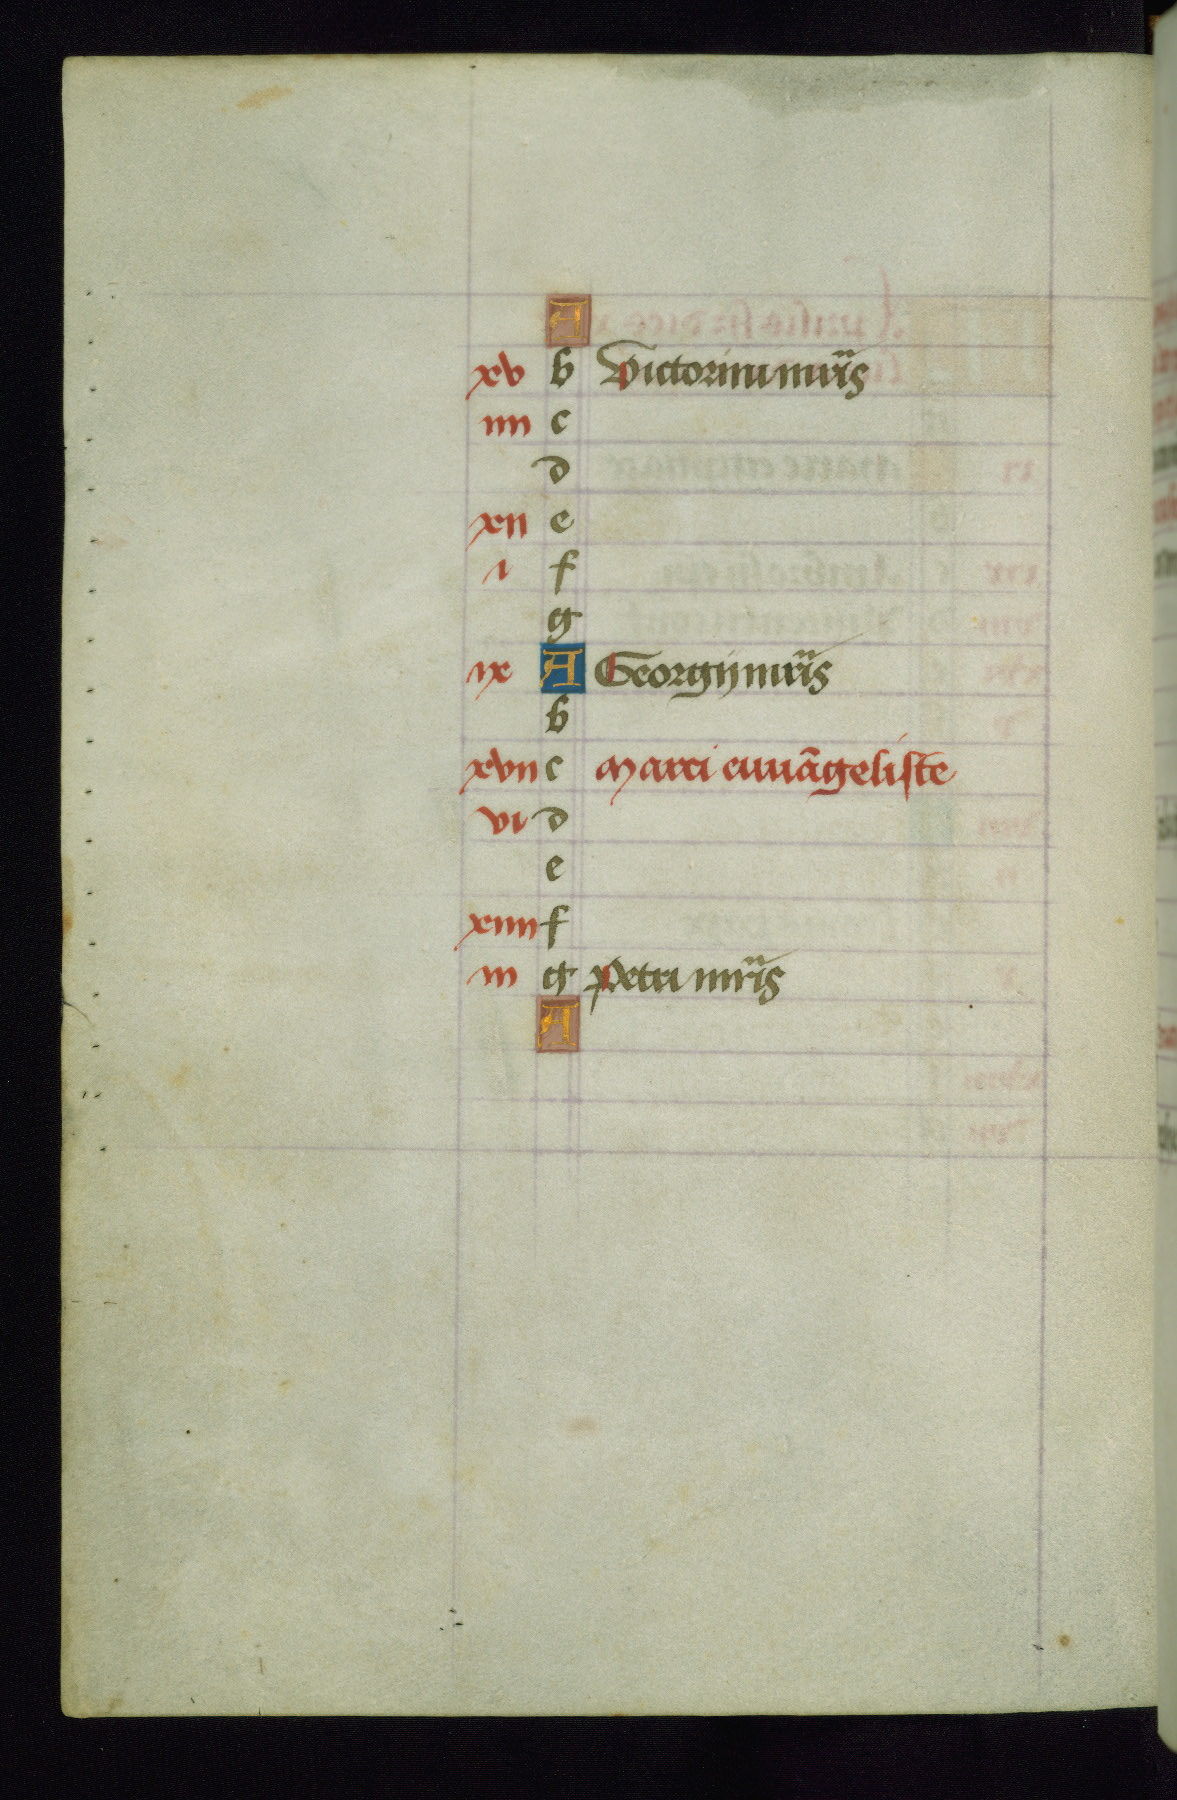 A
xv b Victorini mr̃is
iiii c
d
xii e
i f
g
ix A Georgij mr̃is
b
xvii c Marci euuãgeliste
vi d
e
xiiii f
iii g Petri mr̃is
A